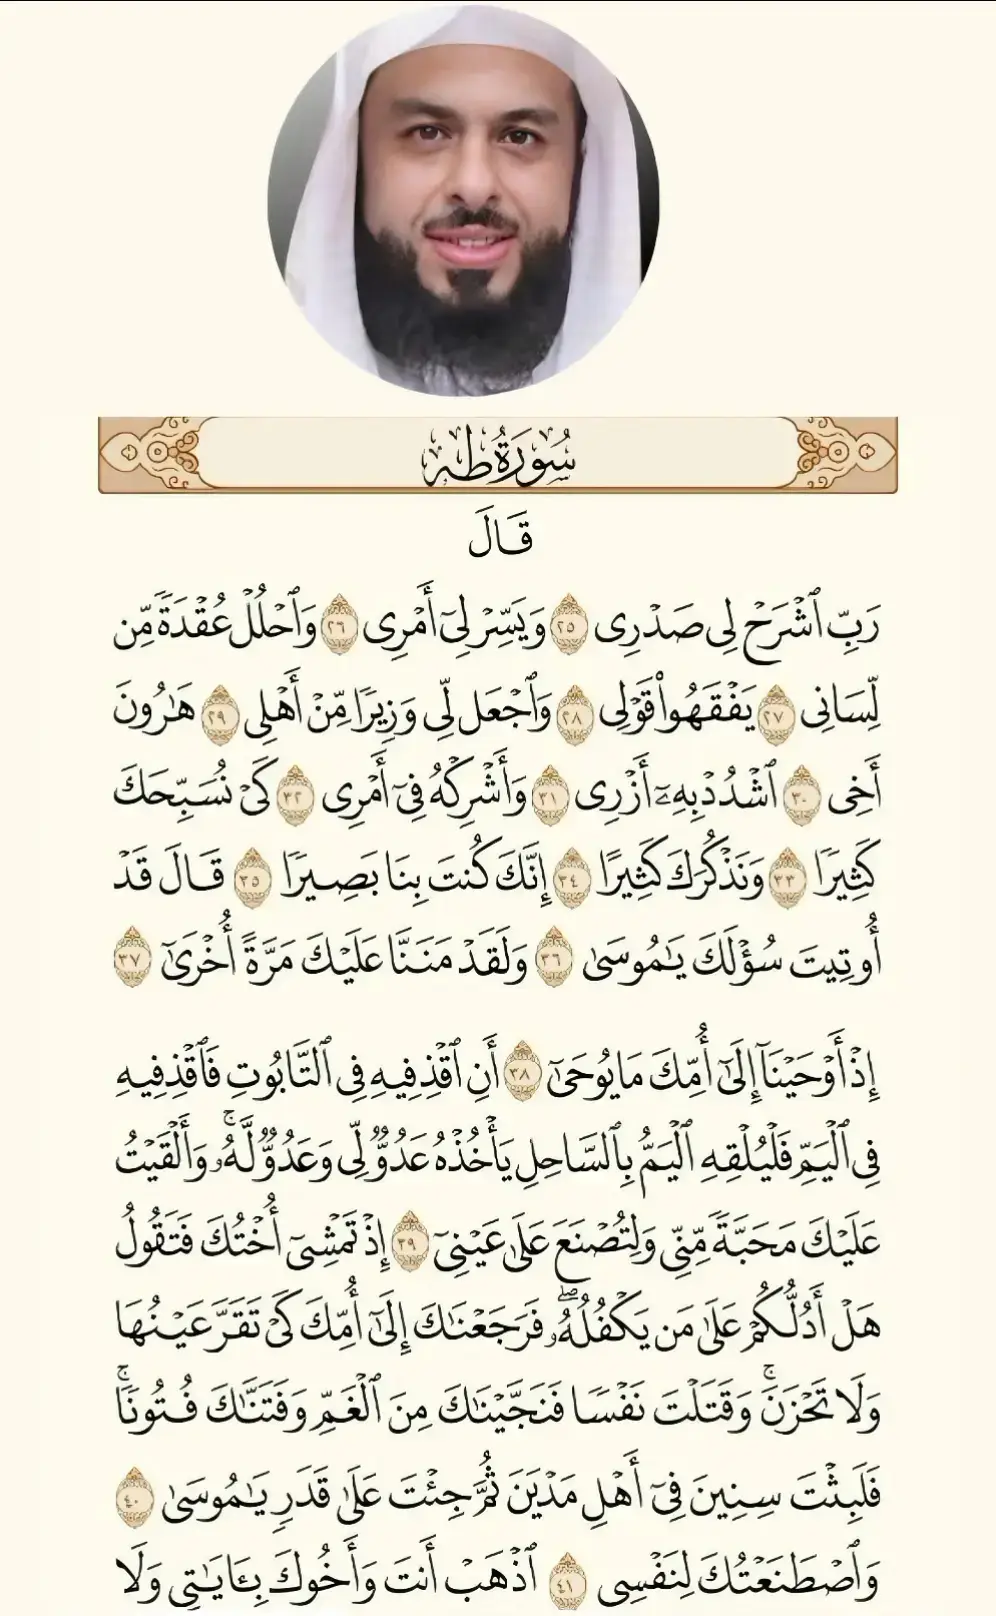 سُورَةُ طه
قَالَ
رَبِّ ٱشْرَحْ لِى صَدْرِى ٢٥ وَيَسِّرْ لِىٓ أَمْرِى ٢٦ وَٱحْلُلْ عُقْدَةً مِّن
لِّسَانِى ٢٧ يَفْقَهُوا۟ قَوْلِى ٢٨ وَٱجْعَل لِّى وَزِيرًا مِّنْ أَهْلِى ٢٩ هَـٰرُونَ
أَخِى ٣٠ ٱشْدُدْ بِهِۦٓ أَزْرِى ٣١ وَأَشْرِكْهُ فِىٓ أَمْرِى ٣٢ كَىْ نُسَبِّحَكَ
كَثِيرًا ٣٣ وَنَذْكُرَكَ كَثِيرًا ٣٤ إِنَّكَ كُنتَ بِنَا بَصِيرًا ٣٥ قَالَ قَدْ
أُوتِيتَ سُؤْلَكَ يَـٰمُوسَىٰ ٣٦ وَلَقَدْ مَنَنَّا عَلَيْكَ مَرَّةً أُخْرَىٰٓ ٣٧
إِذْ أَوْحَيْنَآ إِلَىٰٓ أُمِّكَ مَا يُوحَىٰٓ ٣٨ أَنِ ٱقْذِفِيهِ فِى ٱلتَّابُوتِ فَٱقْذِفِيهِ
فِى ٱلْيَمِّ فَلْيُلْقِهِ ٱلْيَمُّ بِٱلسَّاحِلِ يَأْخُذْهُ عَدُوٌّ لِّى وَعَدُوٌّ لَّهُۥ ۚ وَأَلْقَيْتُ
عَلَيْكَ مَحَبَّةً مِّنِّى وَلِتُصْنَعَ عَلَىٰ عَيْنِىٓ ٣٩ إِذْ تَمْشِىٓ أُخْتُكَ فَتَقُولُ
هَلْ أَدُلُّكُمْ عَلَىٰ مَن يَكْفُلُهُۥ ۖ فَرَجَعْنَـٰكَ إِلَىٰٓ أُمِّكَ كَىْ تَقَرَّ عَيْنُهَا
وَلَا تَحْزَنَ ۚ وَقَتَلْتَ نَفْسًا فَنَجَّيْنَـٰكَ مِنَ ٱلْغَمِّ وَفَتَنَّـٰكَ فُتُونًا ۚ
فَلَبِثْتَ سِنِينَ فِىٓ أَهْلِ مَدْيَنَ ثُمَّ جِئْتَ عَلَىٰ قَدَرٍ يَـٰمُوسَىٰ ٤٠
وَٱصْطَنَعْتُكَ لِنَفْسِى ٤١ ٱذْهَبْ أَنتَ وَأَخُوكَ بِـَٔايَـٰتِى وَلَا